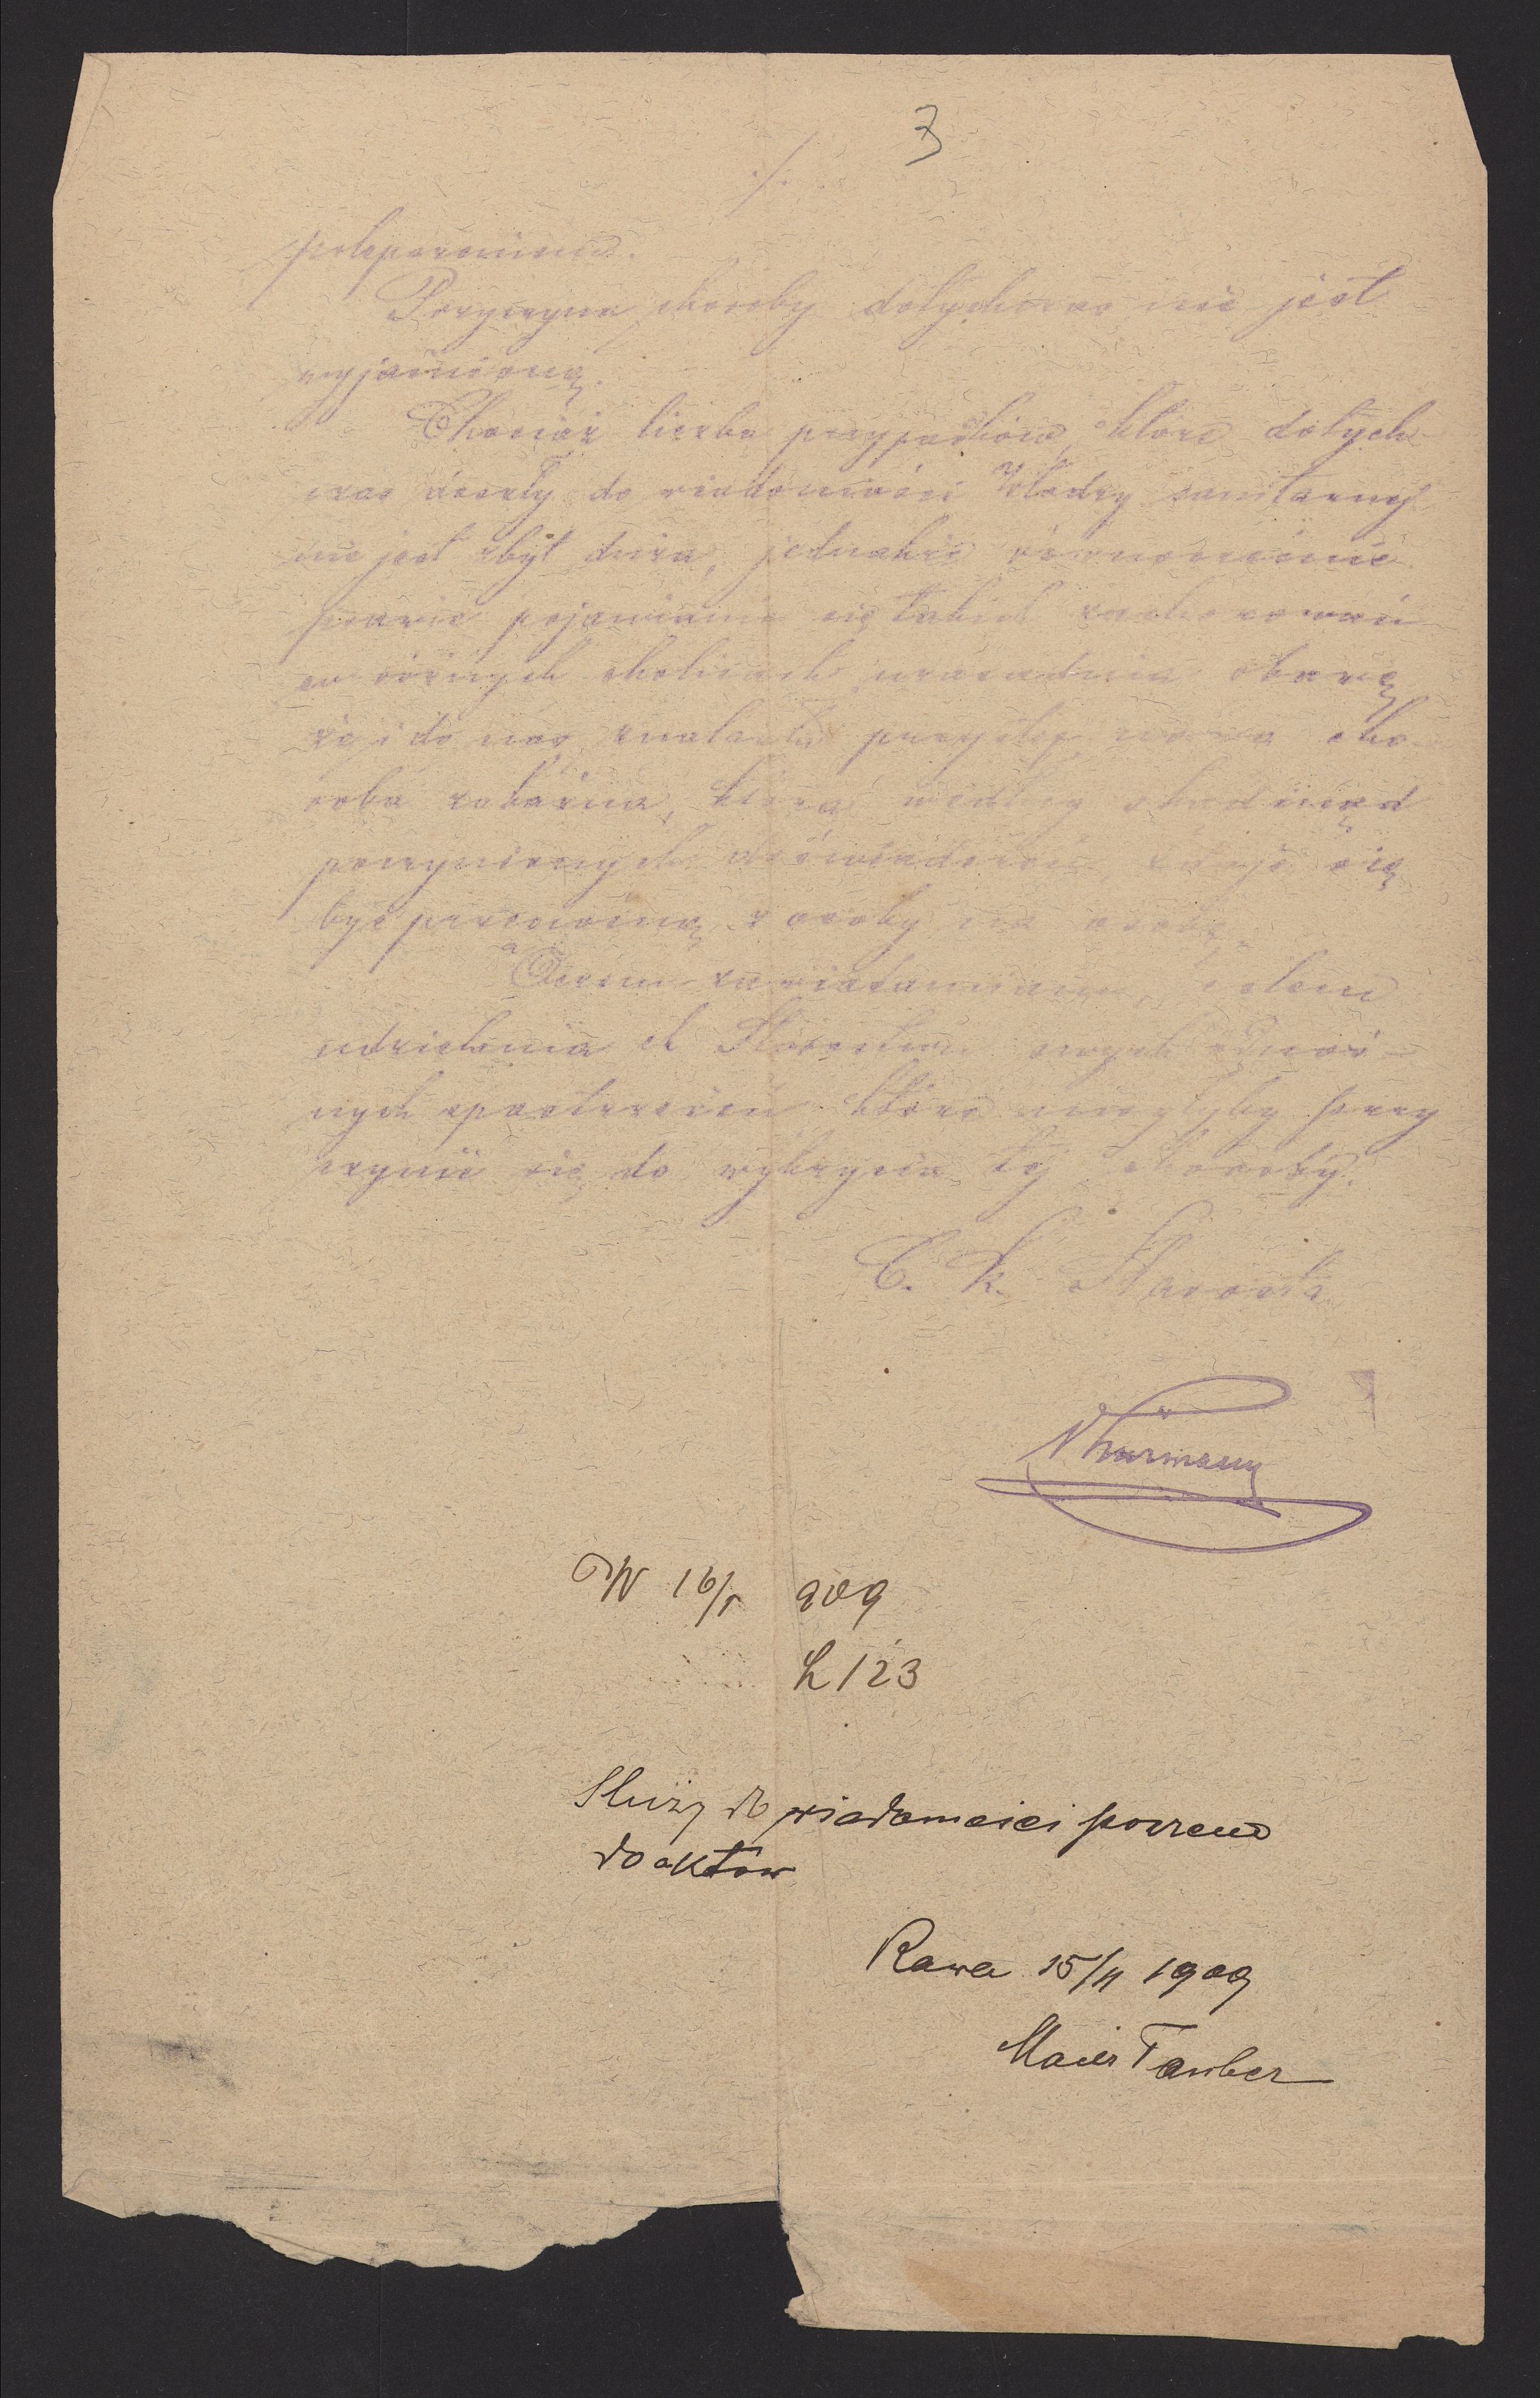 3
./.
polepszeniem.
Przyczyna choroby dotychczas nie jest
wyjaśnioną.
Chociaż liczba przypadków, które dotych-
czas doszły do wiadomości Władzy sanitarnej
nie jest zbyt duża, jednakże równocześnie
prawie pojawianie się takich zachorowań
w różnych okolicach uzasadnia obawę
że i do nas znalazła przystęp nowa cho-
roba zakaźna, która według skądinąd
poczynionych doświadczeń zdaje się
być przenośną z osoby na osobę.
O czem zawiadamiam, celem
udzielenia ck Starostwu swych
nych spostrzeżeń które mogłyby przy
czynić się do wykrycia tej choroby.
C. K. Starosta
16/ 909
L 123
Służy do wiadomości poczem
do aktów
Rawa 15/II 1909
Maier Tauber